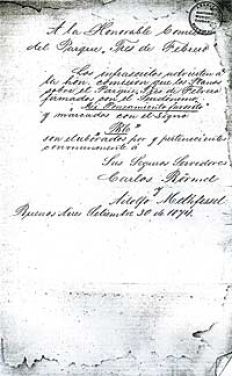 A la Honorable Comision
del Parque, Tres de Febrero
Los infrascritos advierten á
la hon. comision que los Planos
sobre el Parque, Tres de Febrero
firmados con el Pseudonimo
"Mi Pensamiento favorito"
y marcados con el Signo
son elaborados por y pertenecientes
en comun á
Sus Seguros Servidores
Carlos Römmel
y
Adolfo Methfessel
Buenos Aires Setiembre 30 de 1874.